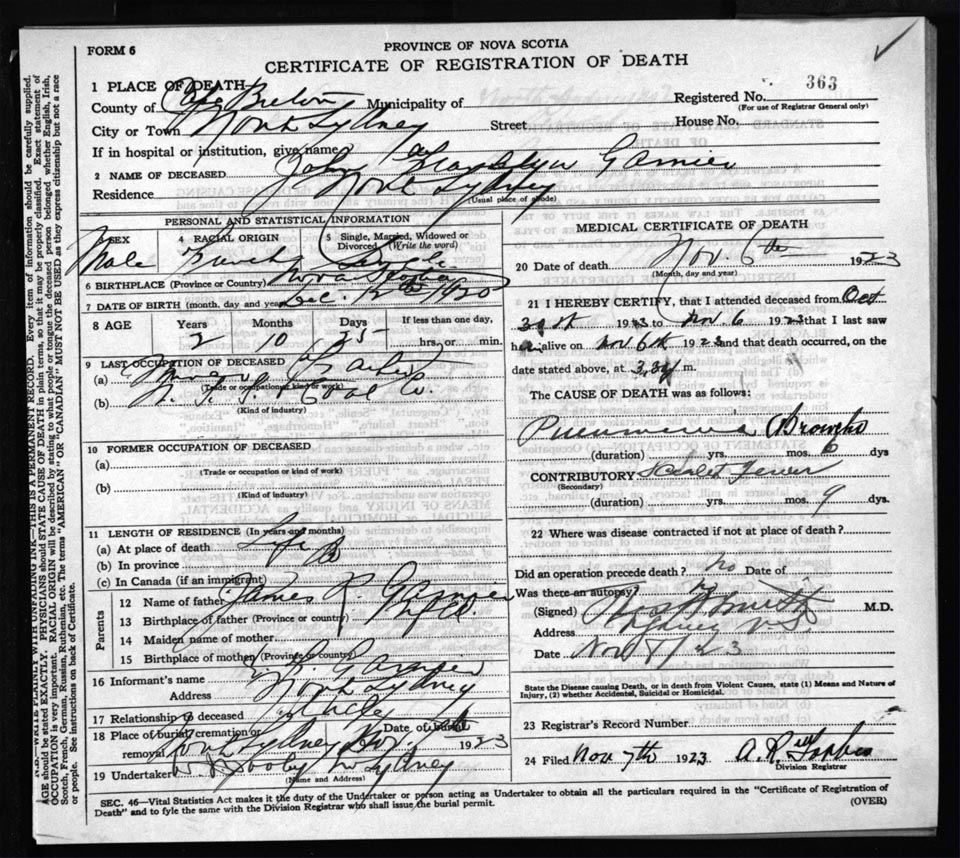 FORM 6
PROVINCE OF NOVA SCOTIA
CERTIFICATE OF REGISTRATION OF DEATH
363
1 PLACE OF DEATH
County of Cape Breton Municipality of
Registered No.
(For use of Registrar General only)
City or Town North Sydney Street House No.
If in hospital or institution, give name
2 NAME OF DECEASED John Garnier
Residence North Sydney
(Usual place of abode)
PERSONAL AND STATISTICAL INFORMATION
SEX Male
4 RACIAL ORIGIN French
5 Single, Married, Widowed or Divorced (Write the word) Single
6 BIRTHPLACE (Province or Country) Nova Scotia
7 DATE OF BIRTH (month, day and year) Dec. 12th 1920
8 AGE Years Months Days If less than one day,
2 10 25 hrs. or min.
9 LAST OCCUPATION OF DECEASED
(a)
(Trade or occupation or kind of work)
(b) N. S. S. & Coal Co.
(Kind of industry)
10 FORMER OCCUPATION OF DECEASED
(a)
(Trade or occupation or kind of work)
(b)
(Kind of industry)
11 LENGTH OF RESIDENCE (in years and months)
(a) At place of death Life
(b) In province
(c) In Canada (if an immigrant)
Parents
12 Name of father James R. Garnier
13 Birthplace of father (Province or country) Nfld
14 Maiden name of mother
15 Birthplace of mother (Province or country)
16 Informant's name Garnier
Address North Sydney
17 Relationship to deceased Uncle
18 Place of burial, cremation or Date of burial
removal North Sydney 1923
19 Undertaker N Sydney
(Name and Address)
MEDICAL CERTIFICATE OF DEATH
20 Date of death Nov. 6th 1923
(Month, day and year)
21 I HEREBY CERTIFY, that I attended deceased from Oct
31st 1923 to Nov. 6 1923 that I last saw
h alive on Nov 6th 1923 and that death occurred, on the
date stated above, at 3.30 m.
The CAUSE OF DEATH was as follows:
Pneumonia Broncho
(duration) yrs. mos. 6 dys
CONTRIBUTORY Scarlet Fever
(Secondary)
(duration) yrs. mos. 9 dys.
22 Where was disease contracted if not at place of death?
Did an operation precede death? no Date of
Was there an autopsy? no
(Signed) M.D.
Address Sydney N.S.
Date Nov 7/23
State the Disease causing Death, or in death from Violent Causes, state (1) Means and Nature of
Injury, (2) whether Accidental, Suicidal or Homicidal.
23 Registrar's Record Number
24 Filed Nov 7th 1923 A. R. Forbes
Division Registrar
SEC. 46—Vital Statistics Act makes it the duty of the Undertaker or person acting as Undertaker to obtain all the particulars required in the "Certificate of Registration of
Death" and to fyle the same with the Division Registrar who shall issue the burial permit.
(OVER)
N.B.—WRITE PLAINLY WITH UNFADING INK—THIS IS A PERMANENT RECORD. Every item of information should be carefully supplied.
AGE should be stated EXACTLY. PHYSICIANS should STATE CAUSE OF DEATH in plain terms, so that it may be properly classified. Exact statement of
OCCUPATION is very important. RACIAL ORIGIN will be described by stating to what people or tongue the deceased person belonged whether English, Irish,
Scotch, French, German, Russian, Ruthenian, etc. The terms "AMERICAN" OR "CANADIAN" MUST NOT BE USED as they express citizenship but not a race
or people. See instructions on back of Certificate.